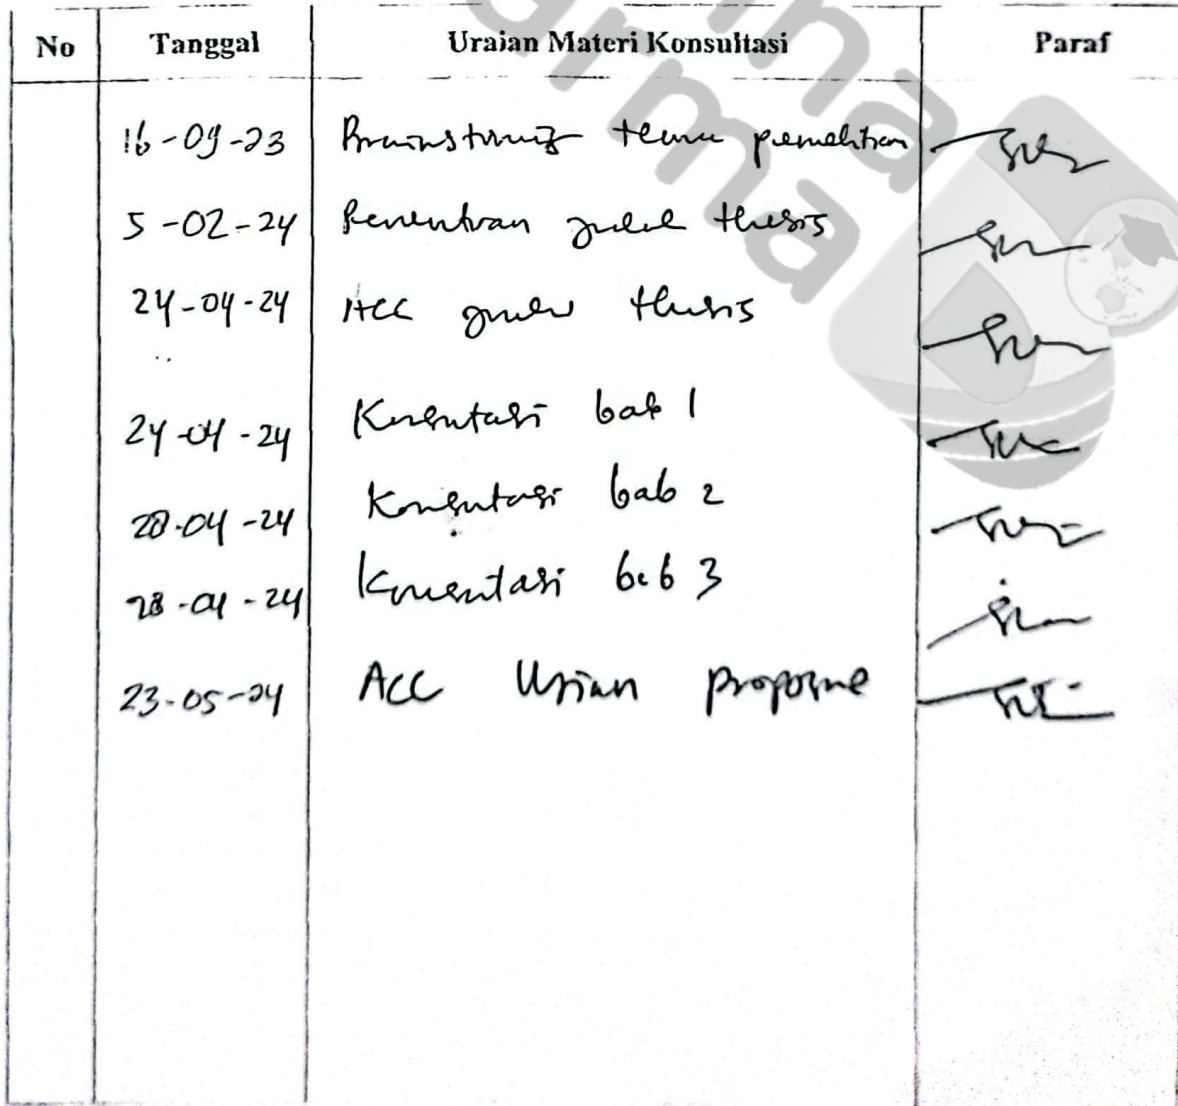 No Tanggal Uraian Materi Konsultasi Paraf
16-09-23 Brainstorming tema penelitian
5-02-24 Penentuan judul thesis
24-04-24 ACC judul thesis
24-04-24 Konsultasi bab 1
28-04-24 Konsultasi bab 2
28-04-24 Konsultasi bab 3
23-05-24 ACC Ujian proposal